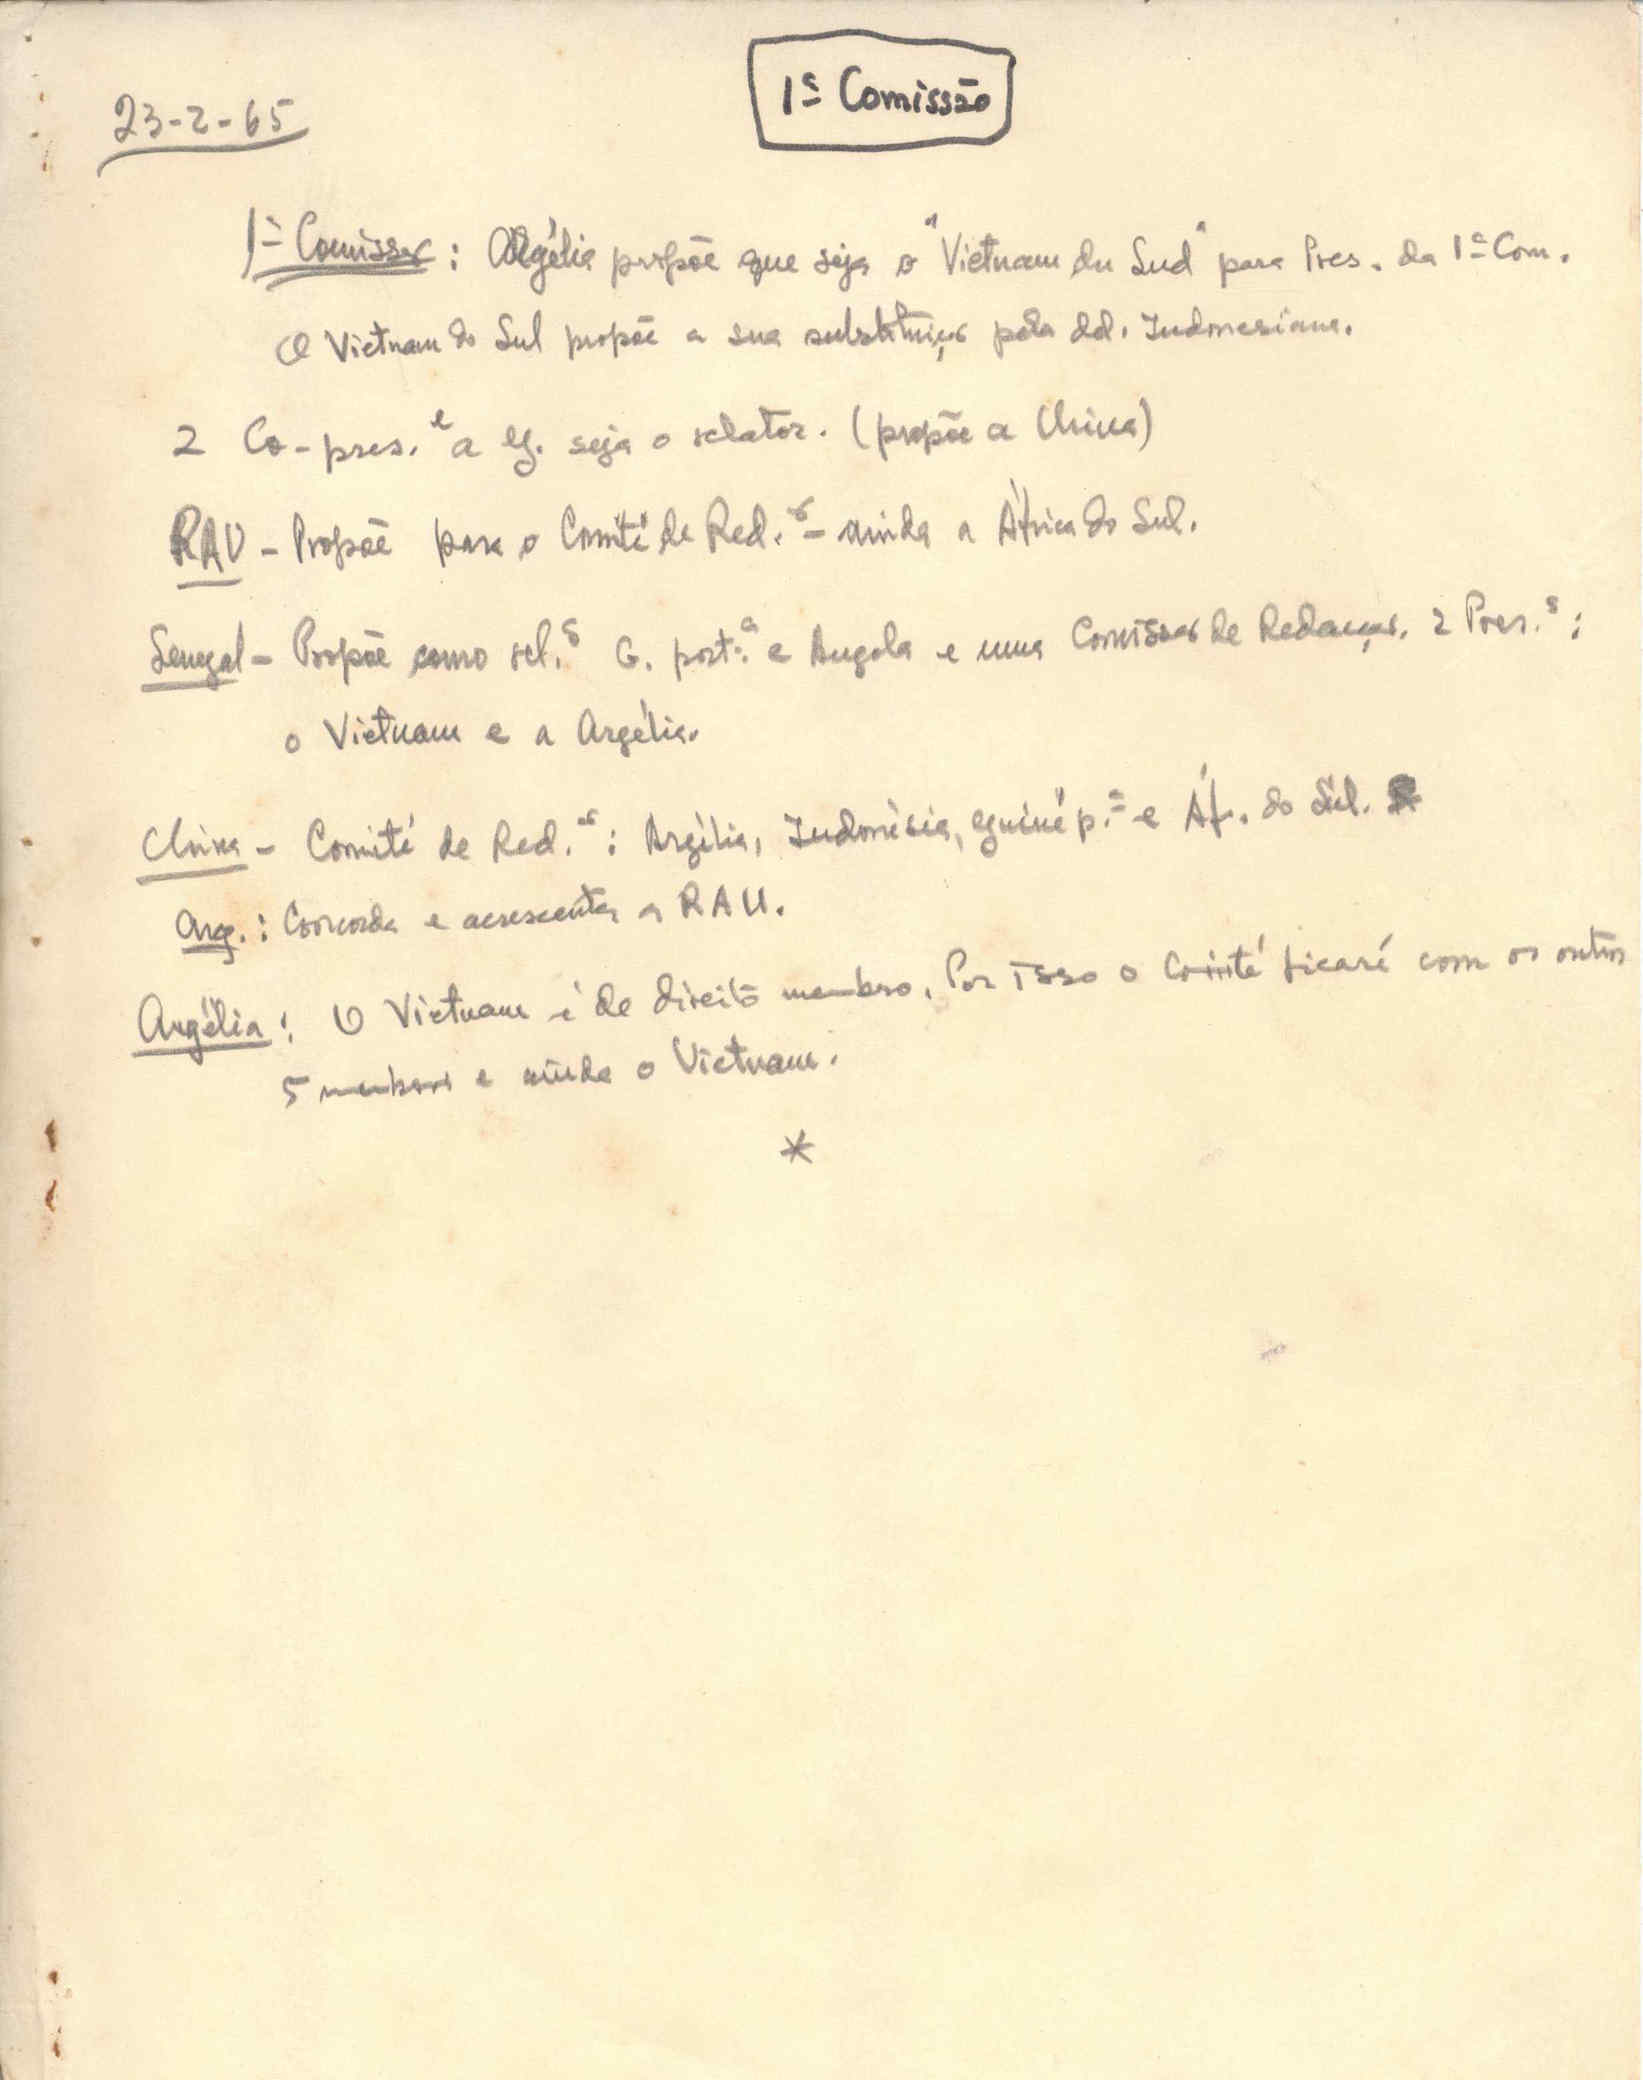 1ª Comissão
23-2-65
1ª Comissão : Argélia propõe que seja o "Vietnam du Sud" para Pres. da 1ª Com.
O Vietnam do Sul propõe a sua substituição pela del. Indonesiana.
2 Co-pres. e a G. seja o relator. (propõe a China)
RAU - Propõe para o Comité de Red.ão - ainda a África do Sul.
Senegal - Propõe como rel.s G. port.a e Angola e uma Comissão de Redacção. 2 Pres.s :
o Vietnam e a Argélia.
China - Comité de Red.ão : Argélia, Indonésia, Guiné p.ª e Áf. do Sul.
Arg. : Concorda e acrescenta a RAU.
Argélia : O Vietnam é de direito membro. Por isso o Comité ficará com os outros
5 membros e ainda o Vietnam.
*